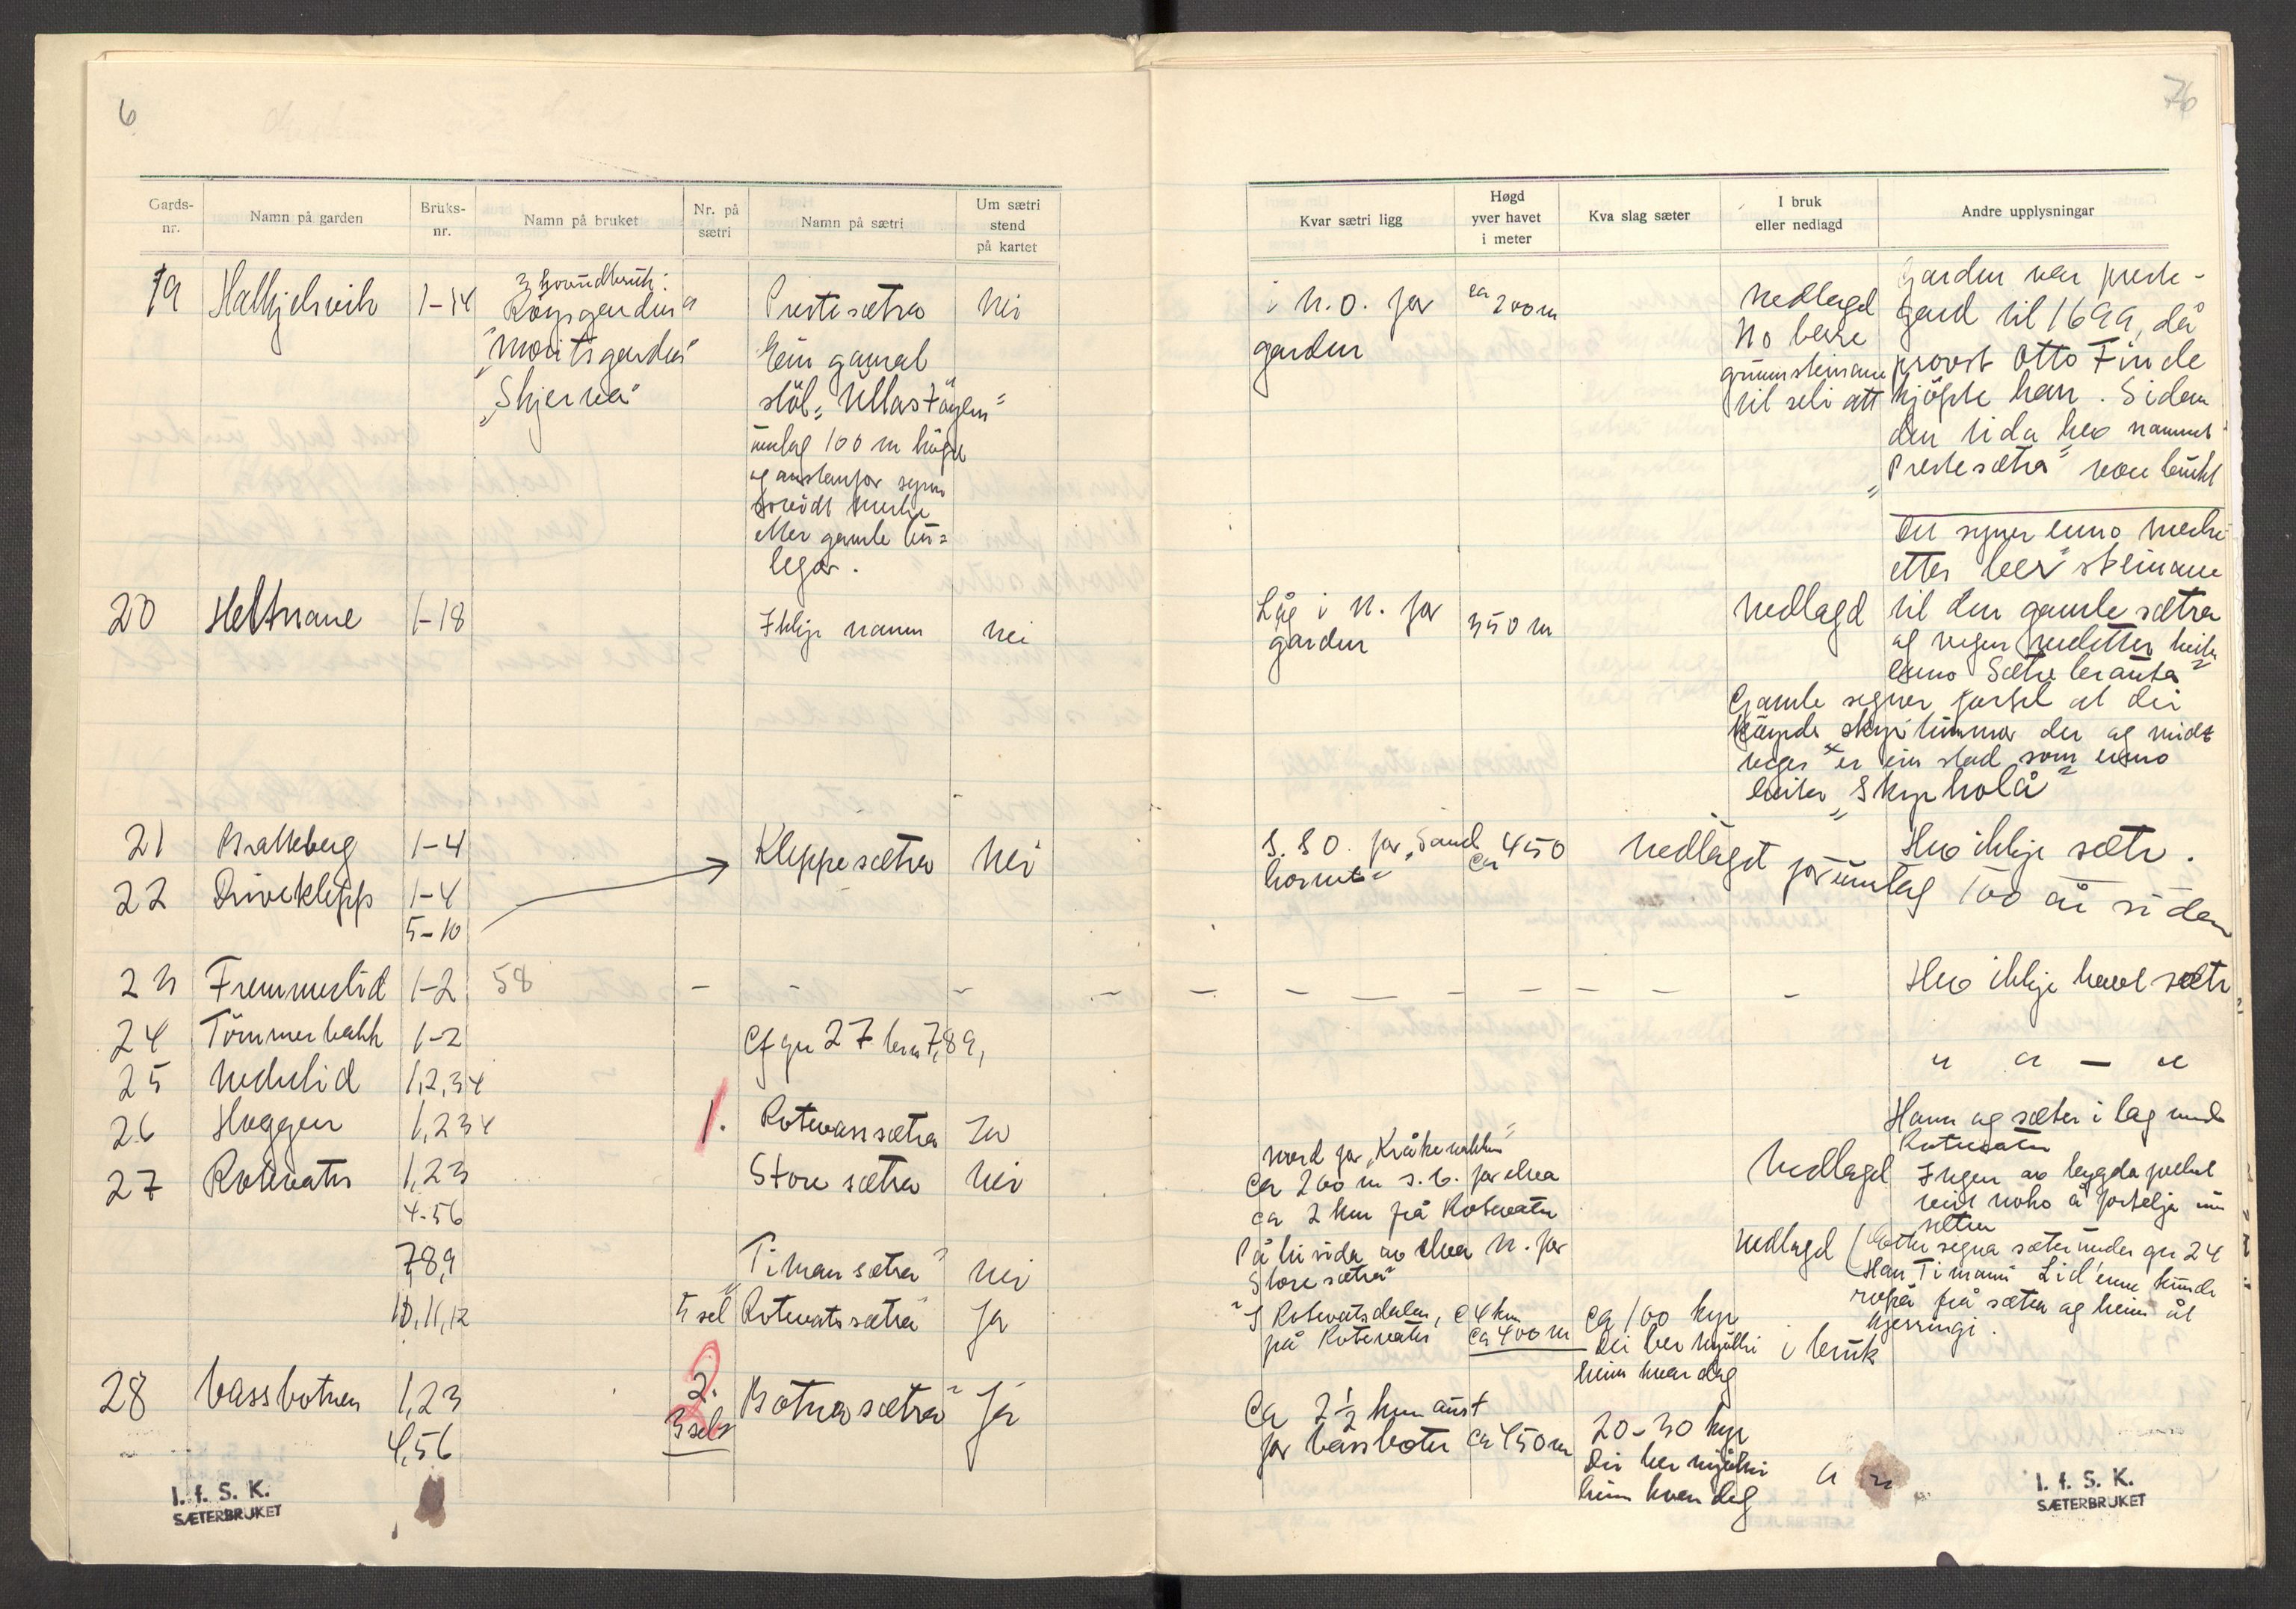 6
76
Gards-
nr.
Namn på garden
Bruks-
nr.
Namn på bruket
Nr. på
sætri
Namn på sætri
Um sætri
stend
på kartet
Kvar sætri ligg
Høgd
yver havet
i meter
Kva slag sæter
I bruk
eller nedlagd
Andre upplysningar
19 Halkjelsvik 1-14
3 hovudbruk:
Röysgarden"
"Moritsgarden"
"Skjerva"
Prestesætra nei
Ein gamal
stöl "Ullastöylen"
umlag 100 m högre
og austanfor syner
etter gamle
legor.
i N.O. for
garden
ca 200 m
nedlagd
No berre
grunnsteinane
til seli att
Garden var preste-
gard til 1699, då
provst Otto Finde
kjöpte han. Sidan
den tida hev namnet
"Prestesætra" vore brukt
20 Heltnane 1-18
Ikkje namn nei
Låg i N. for
garden
350 m
nedlagd
Det syner enno merke
etter steinane
til den gamle sætra
og vegen nedetter heiter
enno "Sætrebrauta"
Gamle segner fortel at dei
köyrde skipstimmer der og midt
veges er ein stad som enno
heiter "Skipholå"
21 Bratteberg 1-4
Hev ikkje sætr.
22 Driveklepp 1-4
5-10
Kleppesætra Nei
S. SO. for "Sand
hornet"
ca 450
nedlagt for umlag 100 år sidan
23 Fremmerlid 1-2 58
Hev ikkje havt sætr
24 Tömmerbakk 1-2
Cf gn 27 brn 7,8 9,
" " — "
25 Nedrelid 1,2,3 4
26 Huggen 1,2 3 4
1. Rotevassætra Ja
Havn og sæter i lag med
Rotevatn
27 Rotevatn 1,2 3
4-5 6
Storesætra nei
nord for "Kråkenakken"
ca 200 m s.v. for elva
ca 2 km frå Rotevatn
Nedlagd
Ingen av bygdafolket
veit noko å fortelja um
sætra
7,8,9
"Timansætra" nei
På hi sida av elva N. for
"Storesætra"
nedlagd
(Etter segna sæter under gn 24
Han "Timann" Lid'enne kunde
ropa frå sætra og heim åt
kjerringi.
10,11,12
5 sel Rotevatssætra" Ja
I Rotevatsdalen, c 4 km
frå Rotevatn
ca 400 m
ca 100 kyr
Dei ber mjölki
heim kvar dag
i bruk
28 Vassbotnen 1,2 3
4,5 6
2.
3 sel
Botnasætra" Ja
Ca 2 1/2 km aust
for Vassbotn
ca 450 m
20-30 kyr
Dei ber mjölki
heim kvar dag
" "
I. f. S. K.
SÆTERBRUKET
I. f. S. K.
SÆTERBRUKET